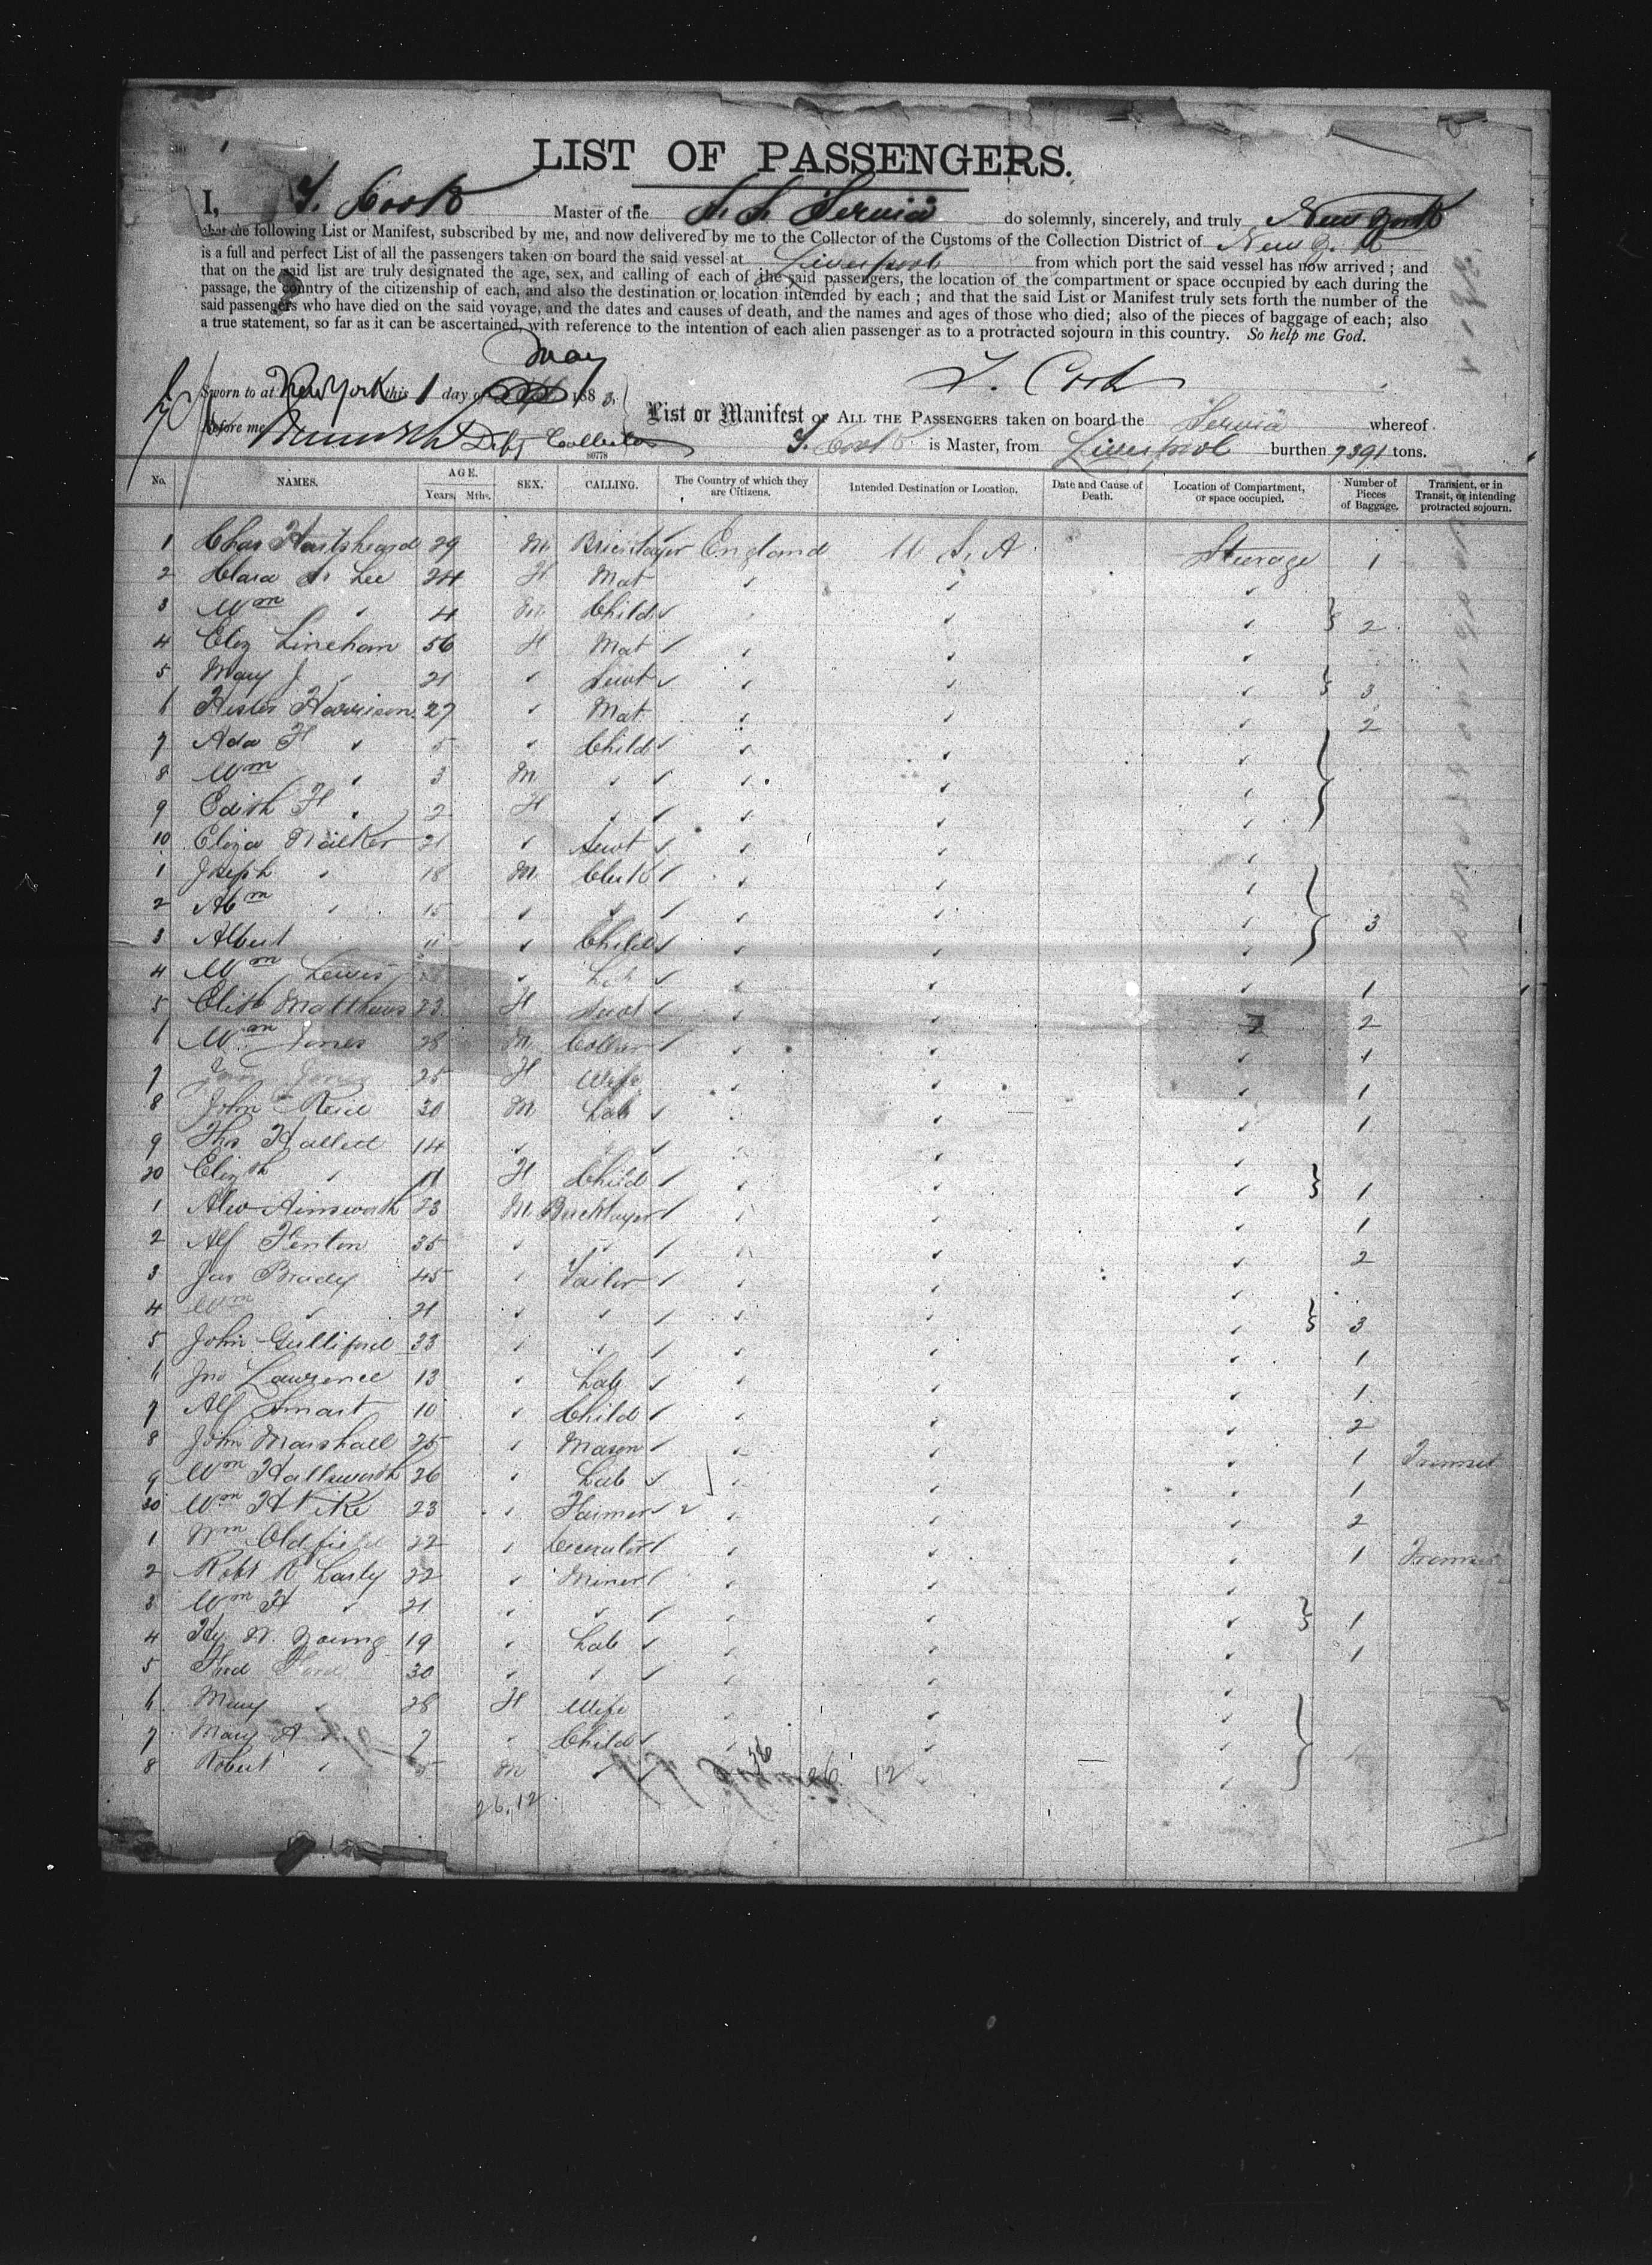 LIST OF PASSENGERS.
I, T. Cook Master of the S. S. Servia do solemnly, sincerely, and truly New York
that the following List or Manifest, subscribed by me, and now delivered by me to the Collector of the Customs of the Collection District of New York
is a full and perfect List of all the passengers taken on board the said vessel at Liverpool from which port the said vessel has now arrived; and
that on the said list are truly designated the age, sex, and calling of each of the said passengers, the location of the compartment or space occupied by each during the
passage, the country of the citizenship of each, and also the destination or location intended by each; and that the said List or Manifest truly sets forth the number of the
said passengers who have died on the said voyage, and the dates and causes of death, and the names and ages of those who died; also of the pieces of baggage of each; also
a true statement, so far as it can be ascertained, with reference to the intention of each alien passenger as to a protracted sojourn in this country. So help me God.
May
Sworn to at New York this 1 day of 1888, T. Cook
List or Manifest OF ALL THE PASSENGERS taken on board the Servia whereof
Before me Depy Collector T. Cook is Master, from Liverpool burthen 7391 tons.
80778
No. NAMES. AGE. Years. Mths. SEX. CALLING. The Country of which they are Citizens. Intended Destination or Location. Date and Cause of Death. Location of Compartment, or space occupied. Number of Pieces of Baggage. Transient, or in Transit, or intending protracted sojourn.
1 Chas Hartshead 29 M Bricklayer England U. S. A Steerage 1
2 Clara S. Lee 24 F Mat
3 Wm 4 M Child 2
4 Eliz Linehan 56 F Mat
5 Mary J. 21 Servt 3
6 Hester Harrison 27 Mat 2
7 Ada F 5 Child
8 Wm 3 M
9 Edith F 2 F
10 Eliza Walker 21 Servt
1 Joseph 18 M Clerk
2 Abm 15
3 Albert 11 Child 3
4 Wm Lewis Lab 1
5 Elizth Matthews 23 F Servt 2
6 Wm Jones 28 M Collier 1
7 Jones 25 F Wife 1
8 John Reid 30 M Lab 1
9 Thos Hallett 14
20 Elizth 11 F Child 1
1 Alex Ainsworth 23 M Bricklayer 1
2 Alf Fenton 35 2
3 Jas Brady 45 Tailor
4 Wm 21 3
5 John Gulliford 33 1
6 Jno Lawrence 13 Lab 1
7 Alf Smart 10 Child 2
8 John Marshall 25 Mason 1 Transit
9 Wm Hallsworth 26 Lab 1
30 Wm H Pike 23 Farmer 2
1 Wm Oldfield 22 Decorator 1 Transit
2 Robt R Lasly 22 Miner
3 Wm H 21 1
4 Hy. W. Young 19 Lab 1
5 Fred Ford 30
6 Mary 28 F Wife
7 Mary A 7 Child
8 Robert 5 M
26 12
26.12